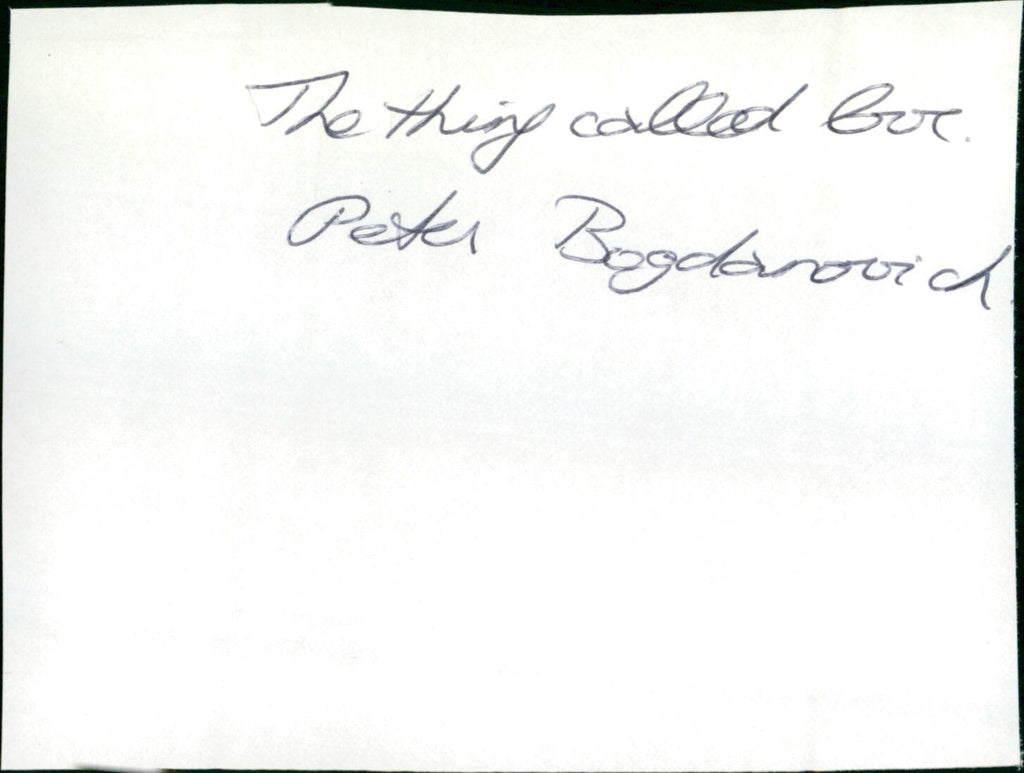 The thing called love.
Peter Bogdanovich.